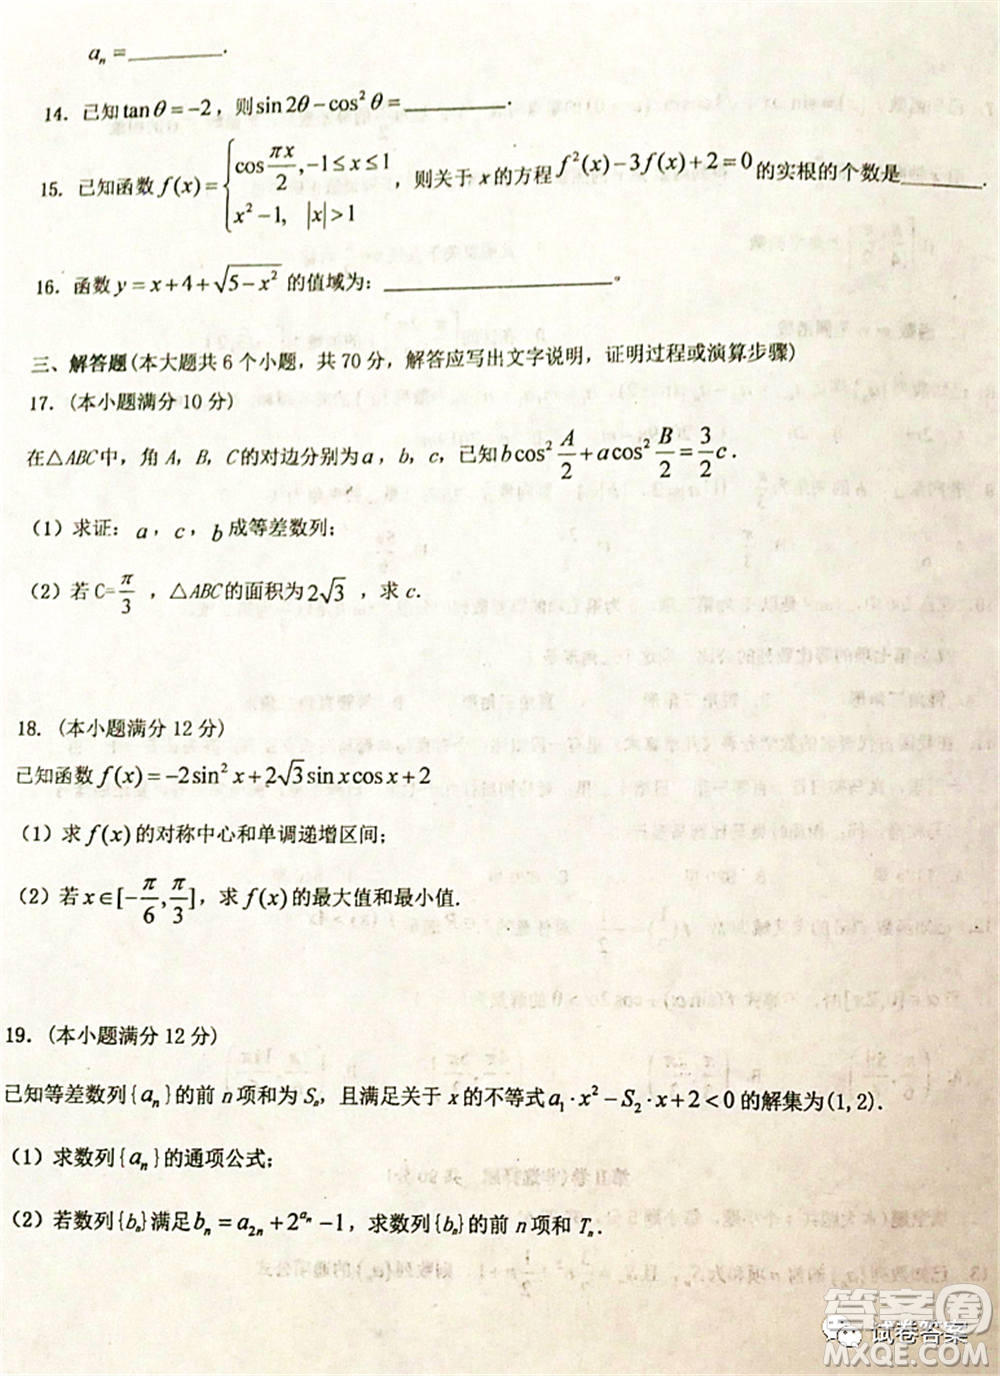 aₙ = ________.
14. 已知tanθ=-2，则sin2θ-cos²θ=________.
15. 已知函数f(x)={cos πx/2, -1≤x≤1; x²-1, |x|>1，则关于x的方程f²(x)-3f(x)+2=0的实根的个数是________.
16. 函数y=x+4+√(5-x²)的值域为：________。
三、解答题(本大题共6个小题，共70分，解答应写出文字说明，证明过程或演算步骤)
17. (本小题满分10分)
在△ABC中，角A，B，C的对边分别为a，b，c，已知bcos²A/2+acos²B/2=3/2c.
（1）求证：a，c，b成等差数列；
（2）若C=π/3，△ABC的面积为2√3，求c.
18. (本小题满分12分)
已知函数f(x)=-2sin²x+2√3sinxcosx+2
（1）求f(x)的对称中心和单调递增区间；
（2）若x∈[-π/6,π/3]，求f(x)的最大值和最小值.
19. (本小题满分12分)
已知等差数列{aₙ}的前n项和为Sₙ，且满足关于x的不等式a₁·x²-S₂·x+2<0的解集为(1,2).
（1）求数列{aₙ}的通项公式；
（2）若数列{bₙ}满足bₙ=a₂ₙ+2^(aₙ)-1，求数列{bₙ}的前n项和Tₙ.
答案圈
试卷答案
MXQE.COM